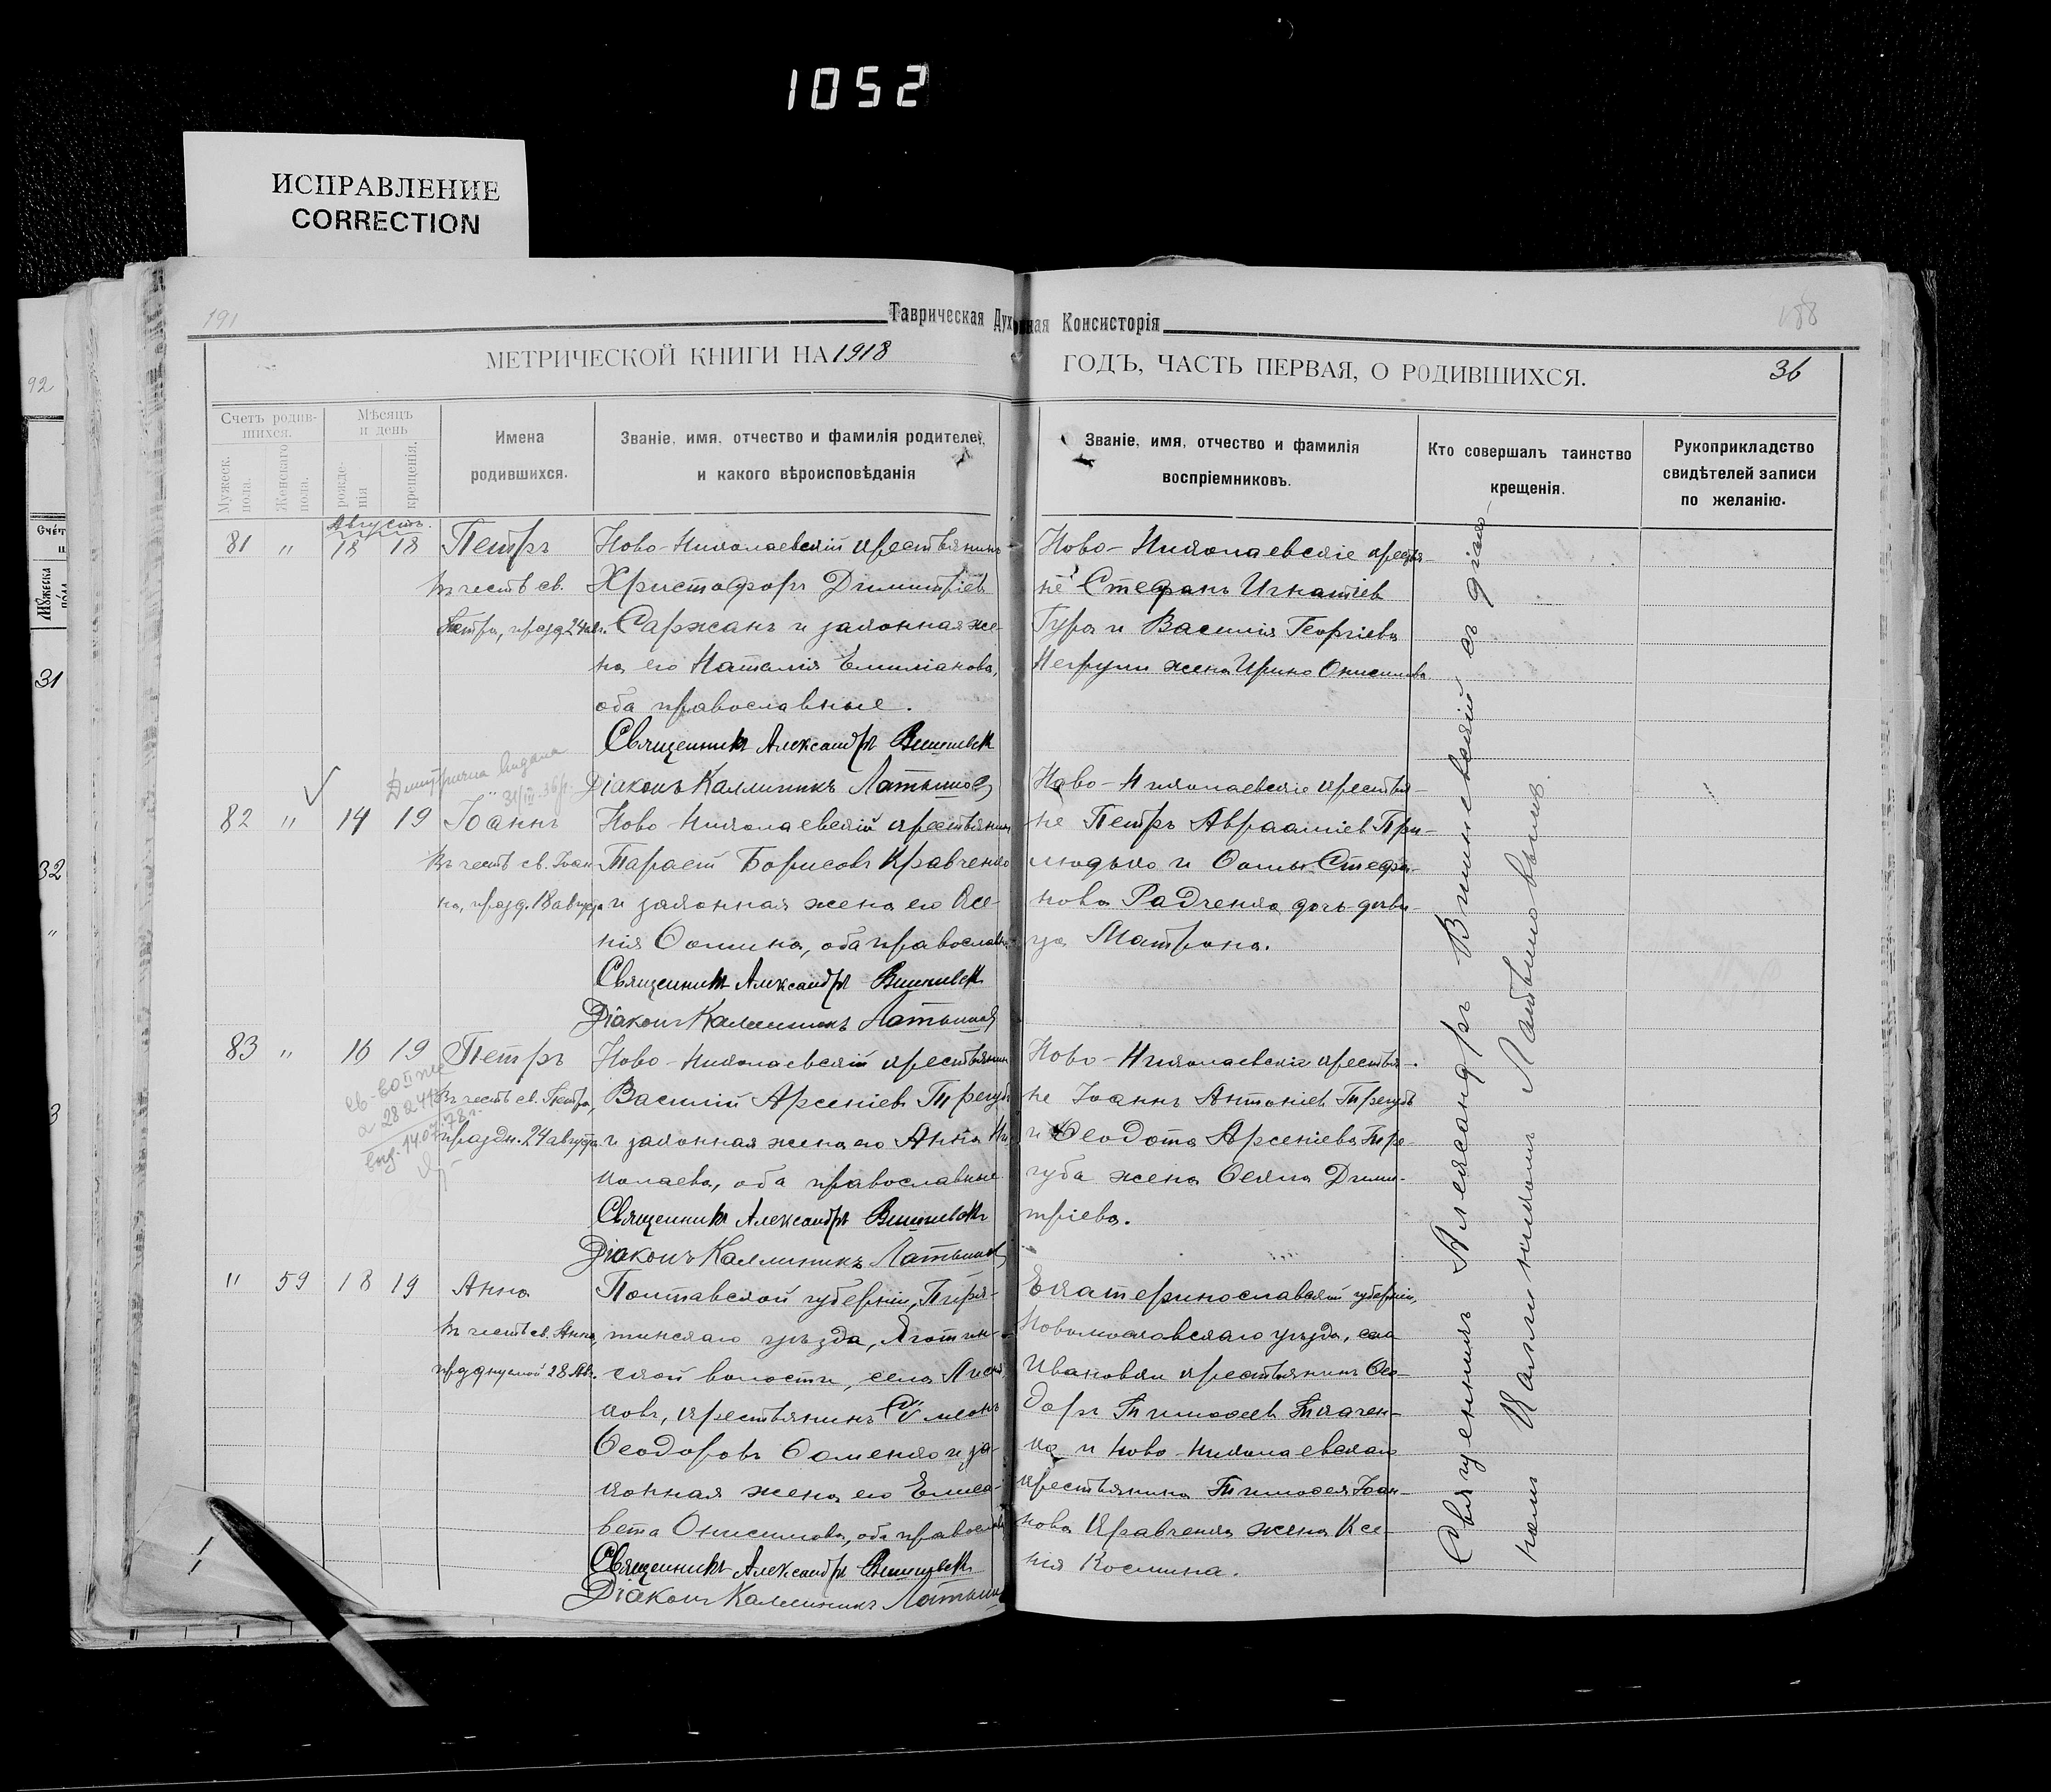 1052
ИСПРАВЛЕНИЕ
CORRECTION
191
188
Таврическая Духовная Консисторія
МЕТРИЧЕСКОЙ КНИГИ НА 1918
ГОДЪ, ЧАСТЬ ПЕРВАЯ, О РОДИВШИХСЯ.
36
Счетъ родив-
шихся.
Мужеск. пола.
Женскаго пола.
Мѣсяцъ
и день
рожде-
нія
крещенія.
Имена
родившихся.
Званіе, имя, отчество и фамилія родителей,
и какого вѣроисповѣданія
Званіе, имя, отчество и фамилія
воспріемниковъ.
Кто совершалъ таинство
крещенія.
Рукоприкладство
свидѣтелей записи
по желанію.
Августъ.
81 " 18 18 Петръ
въ честь св.
Петра, празд. 24 авг.
Ново-Николаевскій крестьянинъ
Христофоръ Димитріевъ
Саржанъ и законная же-
на его Наталія Емиліанова,
оба православные.
Священникъ Александръ Вишневск
Діаконъ Каллиникъ Латышов
Ново-Николаевскіе крестья-
не Стефанъ Игнатіев
Гура и Василія Георгіева
Негрули жена Ирина Онисимова
82 " 14 19 Іоаннъ
въ честь св. Іоан
на, празд. 18 августа
Ново-Николаевскій крестьянин
Тарасій Борисовъ Кравченко
и законная жена его Ксе-
нія Ѳомина, оба православн
Священникъ Александръ Вишневск
Діаконъ Каллиникъ Латышов
Ново-Николаевскіе крестья-
не Петръ Авраамiев При-
людько и Ѳомы Стефа-
нова Радченка дочь деви-
ца Матрона.
83 " 16 19 Петръ
въ честь св. Петра,
праздн. 24 августа
Ново-Николаевскій крестьянин
Василій Арсеніевъ Трегуб
и законная жена его Анна Ни
колаева, оба православные
Священникъ Александръ Вишневск
Діаконъ Каллиникъ Латышов
Ново-Николаевскіе крестья-
не Іоаннъ Антоніев Трегубъ
и Ѳеодота Арсеніева Тре-
губа жена Ѳекла Дими-
тріева.
" 59 18 19 Анна
въ честь св. Анны,
празднуемой 28 Авг.
Полтавской губерніи, Пиря-
тинскаго уѣзда, Яготин-
ской волости, села Лисня
ковъ, крестьянинъ Сѵмеонъ
Ѳеодоровъ Ѳоменко и за-
конная жена его Елиса-
вета Онисимова, оба православн
Священникъ Александръ Вишневск
Діаконъ Каллиникъ Латыш
Екатеринославской губерніи,
Новомосковскаго уѣзда, села
Ивановки крестьянинъ Ѳео-
доръ Тимоѳеев Ткачен-
ко и Ново-Николаевскаго
крестьянина Тимоѳея Іоан-
нова Кравченка жена Ксе-
нія Космина.
Священникъ Александръ Вишневскій съ діако-
номъ Каллиникомъ Латышовымъ.